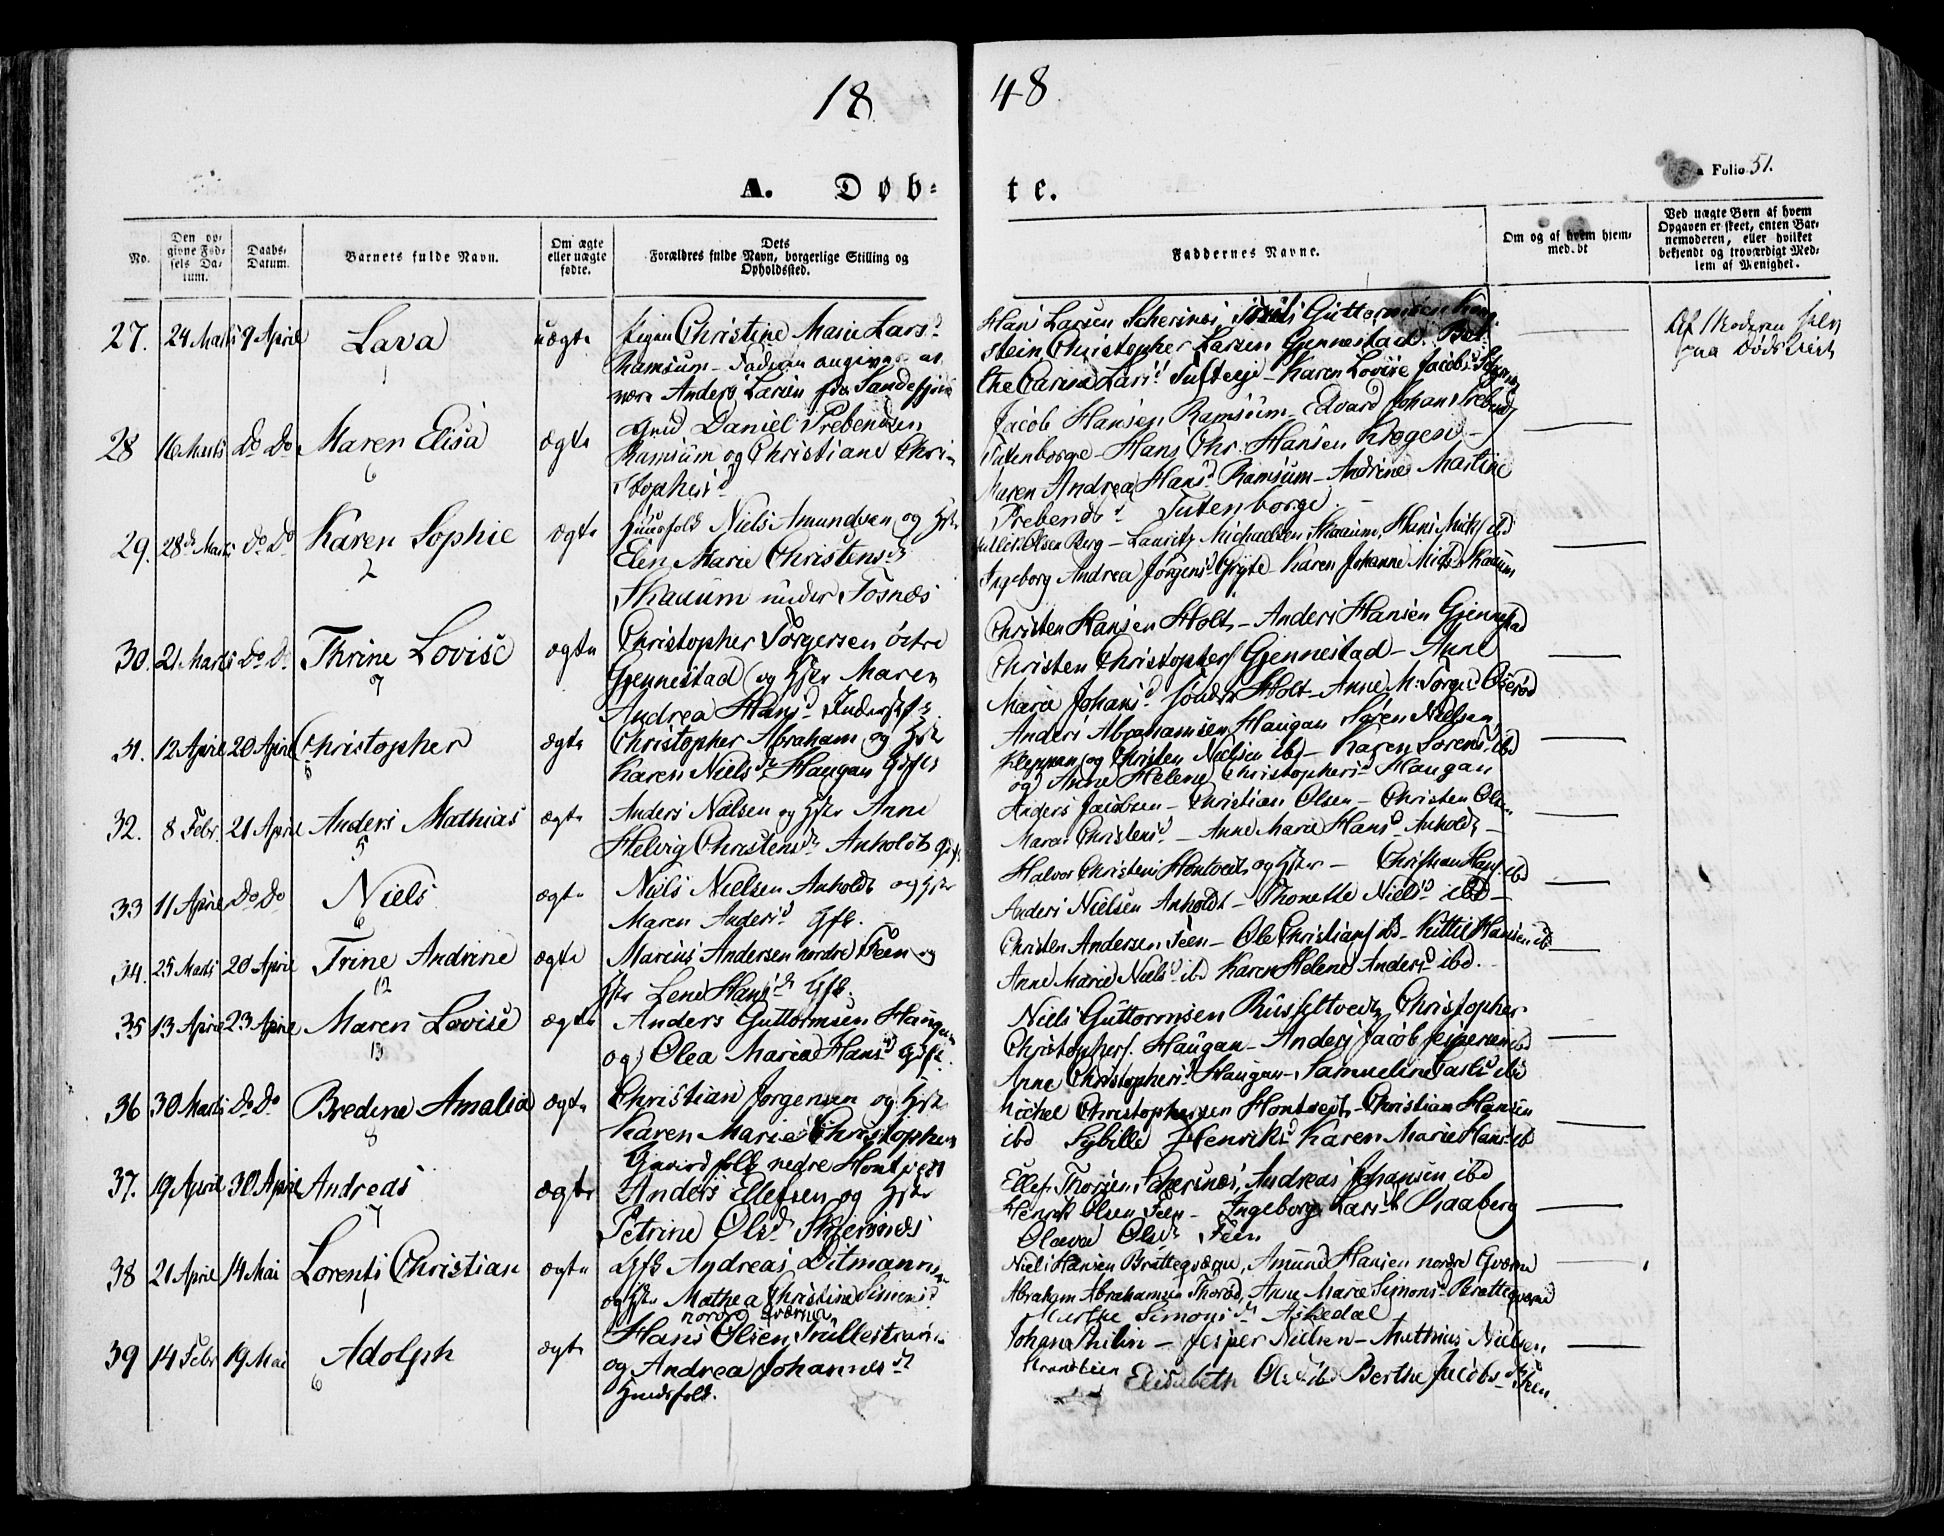 18 48
a Folio 51.
A. Døb- te.
No.
Den op-
givne Fød-
sels Da-
tum.
Daabs-
Datum.
Barnets fulde Navn.
Om ægte
eller uægte
fødte.
Dets
Forældres fulde Navn, borgerlige Stilling og
Opholdssted.
Faddernes Navne.
Om og af hvem hjem-
med.bt
Ved uægte Børn af hvem
Opgaven er skeet, enten Bar-
nemoderen, eller hvilket
bekjendt og troværdigt Med-
lem af Menighet.
27. 24 Marts 9 April Lava uægte
1
Pigen Christine Marie Lars d
Ramsum - Faderen angivet at
være Anders Larsen fra Sandefjord
Hans Larsen Schersnes, Guttormsen
stein Christopher Larsen Gjennestad.
the Carina Lars d - Karen Lovise Jacobs d
Af Moderen selv
paa
28 16 Marts Do Do Maren Elisa ægte
6
Gmd Daniel Prebensen
Ramsum og Christiane Chri-
stophers d
Jacob Hansen Ramsum - Edvard Johan Prebens
Tutenborge - Hans Chr. Hansen
Maren Andrea Hans d Ramsum - Andrine Martine
Prebens d Tutenborge -
29. 28 Marts Do Do Karen Sophie ægte
2
Huusfolk Niels Amundsen og Hstr
Elen Marie Christens dr
Skauum under Fosnæs
Olsen Berg - Lauritz Michaelsen Skauum, Hans Mich ibd
Ingeborg Andrea Jørgens d - Karen Johanne Skauum
30. 21 Marts Do Do Thrine Lovise ægte
7
Christopher Torgersen østre
Gjennestad og Hstr Maren
Andrea Hans d
Christen Hansen Holt - Anders Hansen Gjennestad
Christen Christophers Gjennestad - Anne
Marie Johans d søndre Holt - Anne M:
31. 12 April 20 April Christopher ægte
5
Christopher Abraham og Hstr
Karen Niels dr Haugan Gjfk
Anders Abrahamsen Haugan Søren Nielsen
og Christen Nielsen ibd - Karen Sørens d ibd
og Anne Helene Christophers d Haugan
32. 8 Febr. 21 April Anders Mathias ægte
5
Anders Nielsen og Hstr Anne
Helvig Christens dr Anholdt
Anders Jacobsen - Christian Olsen - Christen Olsen
Maren Christens d - Anne Marie Hans d Anholdt -
33 11 April Do Do Niels ægte
6
Niels Nielsen Anholdt og Hstr
Maren Anders d Gfk.
Halvor Christens Hontvedt og Hstr - Christian Hans. ibd
Anders Nielsen Anholdt - Thonette Niels d ibd -
34. 25 Marts 20 April Trine Andrine ægte
12
Marius Andersen nordre Feen og
Hstr Lene Hans dr Gfk.
Christen Andersen Feen - Ole Christians ibd - Kittil Hansen ibd
Anne Marie Niels d ibd Karen Helene Anders d ibd.
35 13 April 23 April Maren Lovise ægte
13
Anders Guttormsen Haugan
og Olea Maria Hans d Gjfk.
Niels Guttormsen Christopher
Christophers. Haugan - Anders Jacob Jespersen ibd
Anne Christophers d Haugan - Samueline ibd
36 30 Marts Do Do Bredine Amalia ægte
8
Christian Jørgensen og Hstr
Karen Marie Christophers
Gaardfolk nedre Hontvedt
Michel Christophersen Hontvedt - Christian Hansen
ibd Sybille Henriks d Karen Marie Hans d ibd
37. 19 April 30 April Andreas ægte
7
Anders Ellefsen og Hstr
Petrine Ols dr Skjersnæs
Ellef Schersnes, Andreas Johansen ibd
Henrik Olsen Feen - Ingeborg Lars dr Raaberg
Olava Ols dr Feen
38 21 April 14 Mai Lorents Christian ægte
1
Gfk Andreas Ditmansen
og Hstr Mathea Christine Simons d
nordre Qværne
Niels Hansen Brattegværne, Amund Hansen nordre Qværne
Abraham Abrahamsen Thorød, Anne Marie Simons d Brattegværne
Simons dr Askedal
39 14 Febr 19 Mai Adolph ægte
6
Hans Olsen
og Andrea Johannes dr
Huusfolk.
Johan - Jesper Nielsen - Mathias Nielsen
Elisabeth Ols d ibd Berthe Jacobs dr